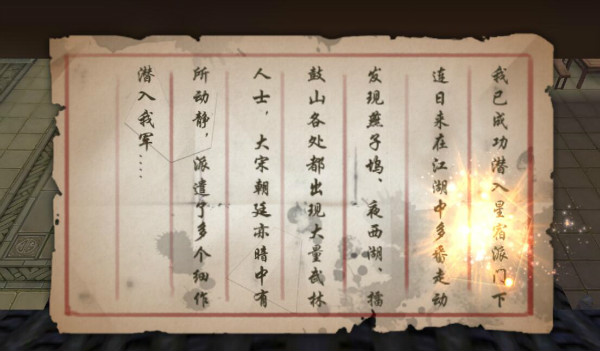 我已成功潜入星宿派门下
连日来在江湖中多番走动
发现燕子坞、夜西湖、擂
鼓山各处都出现大量武林
人士，大宋朝廷亦暗中有
所动静，派遣了多个细作
潜入我军....